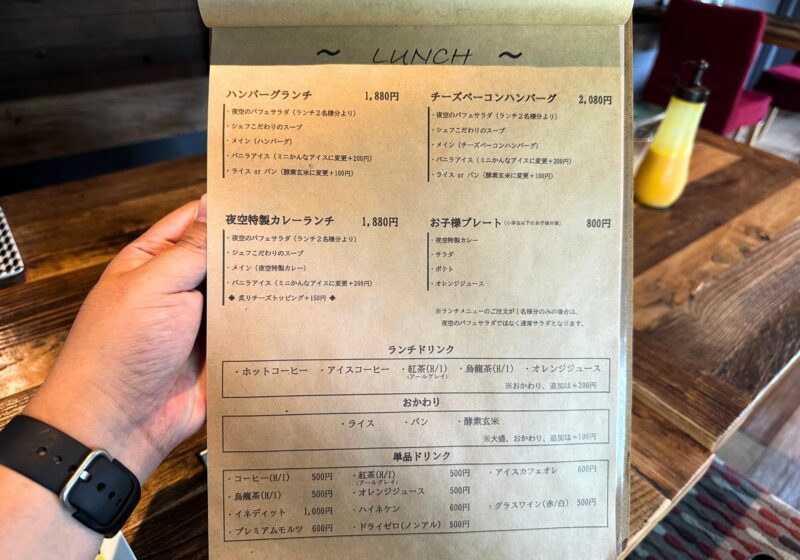 ～ LUNCH ～
ハンバーグランチ 1,880円
・夜空のパフェサラダ（ランチ２名様分より）
・シェフこだわりのスープ
・メイン（ハンバーグ）
・バニラアイス（ミニかんなアイスに変更+200円）
・ライス or パン（酵素玄米に変更+100円）
チーズベーコンハンバーグ 2,080円
・夜空のパフェサラダ（ランチ２名様分より）
・シェフこだわりのスープ
・メイン（チーズベーコンハンバーグ）
・バニラアイス（ミニかんなアイスに変更+200円）
・ライス or パン（酵素玄米に変更+100円）
夜空特製カレーランチ 1,880円
・夜空のパフェサラダ（ランチ２名様分より）
・シェフこだわりのスープ
・メイン（夜空特製カレー）
・バニラアイス（ミニかんなアイスに変更+200円）
◆ 炙りチーズトッピング+150円 ◆
お子様プレート（小学生以下のお子様対象） 800円
・夜空特製カレー
・サラダ
・ポテト
・オレンジジュース
※ランチメニューのご注文が１名様分のみの場合は、
夜空のパフェサラダではなく通常サラダとなります。
ランチドリンク
・ホットコーヒー ・アイスコーヒー ・紅茶(H/I) ・烏龍茶(H/I) ・オレンジジュース
(アールグレイ)
※おかわり、追加は+200円
おかわり
・ライス ・パン ・酵素玄米
※大盛、おかわり、追加は+100円
単品ドリンク
・コーヒー(H/I) 500円 ・紅茶(H/I) 500円 ・アイスカフェオレ 600円
(アールグレイ)
・烏龍茶(H/I) 500円 ・オレンジジュース 500円
・イネディット 1,000円 ・ハイネケン 600円 ・グラスワイン(赤/白) 500円
・プレミアムモルツ 600円 ・ドライゼロ(ノンアル) 500円